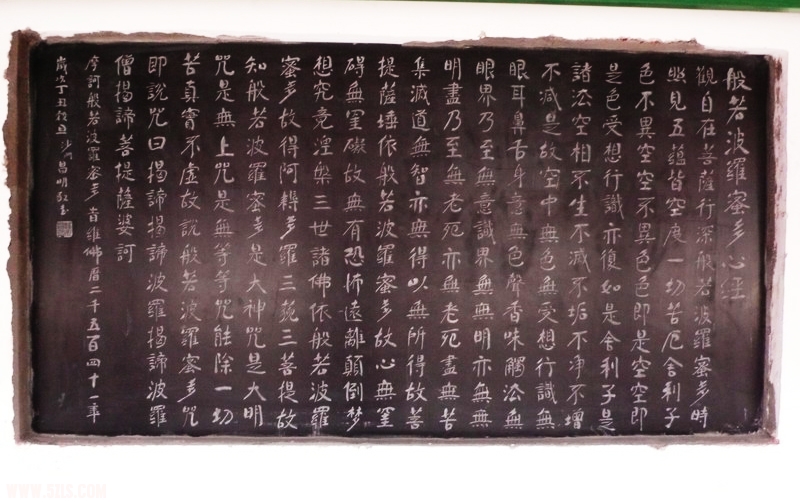 般若波羅蜜多心經
觀自在菩薩行深般若波羅蜜多時
照見五蘊皆空度一切苦厄舍利子
色不異空空不異色色即是空空即
是色受想行識亦復如是舍利子是
諸法空相不生不滅不垢不淨不增
不減是故空中無色無受想行識無
眼耳鼻舌身意無色聲香味觸法無
眼界乃至無意識界無無明亦無無
明盡乃至無老死亦無老死盡無苦
集滅道無智亦無得以無所得故菩
提薩埵依般若波羅蜜多故心無罣
礙無罣礙故無有恐怖遠離顛倒夢
想究竟涅槃三世諸佛依般若波羅
蜜多故得阿耨多羅三藐三菩提故
知般若波羅蜜多是大神咒是大明
咒是無上咒是無等等咒能除一切
苦真實不虛故說般若波羅蜜多咒
即說咒曰揭諦揭諦波羅揭諦波羅
僧揭諦菩提薩婆訶
摩訶般若波羅蜜多 旹維佛曆二千五百四十一年
歲次丁丑 沙門昌明敬書